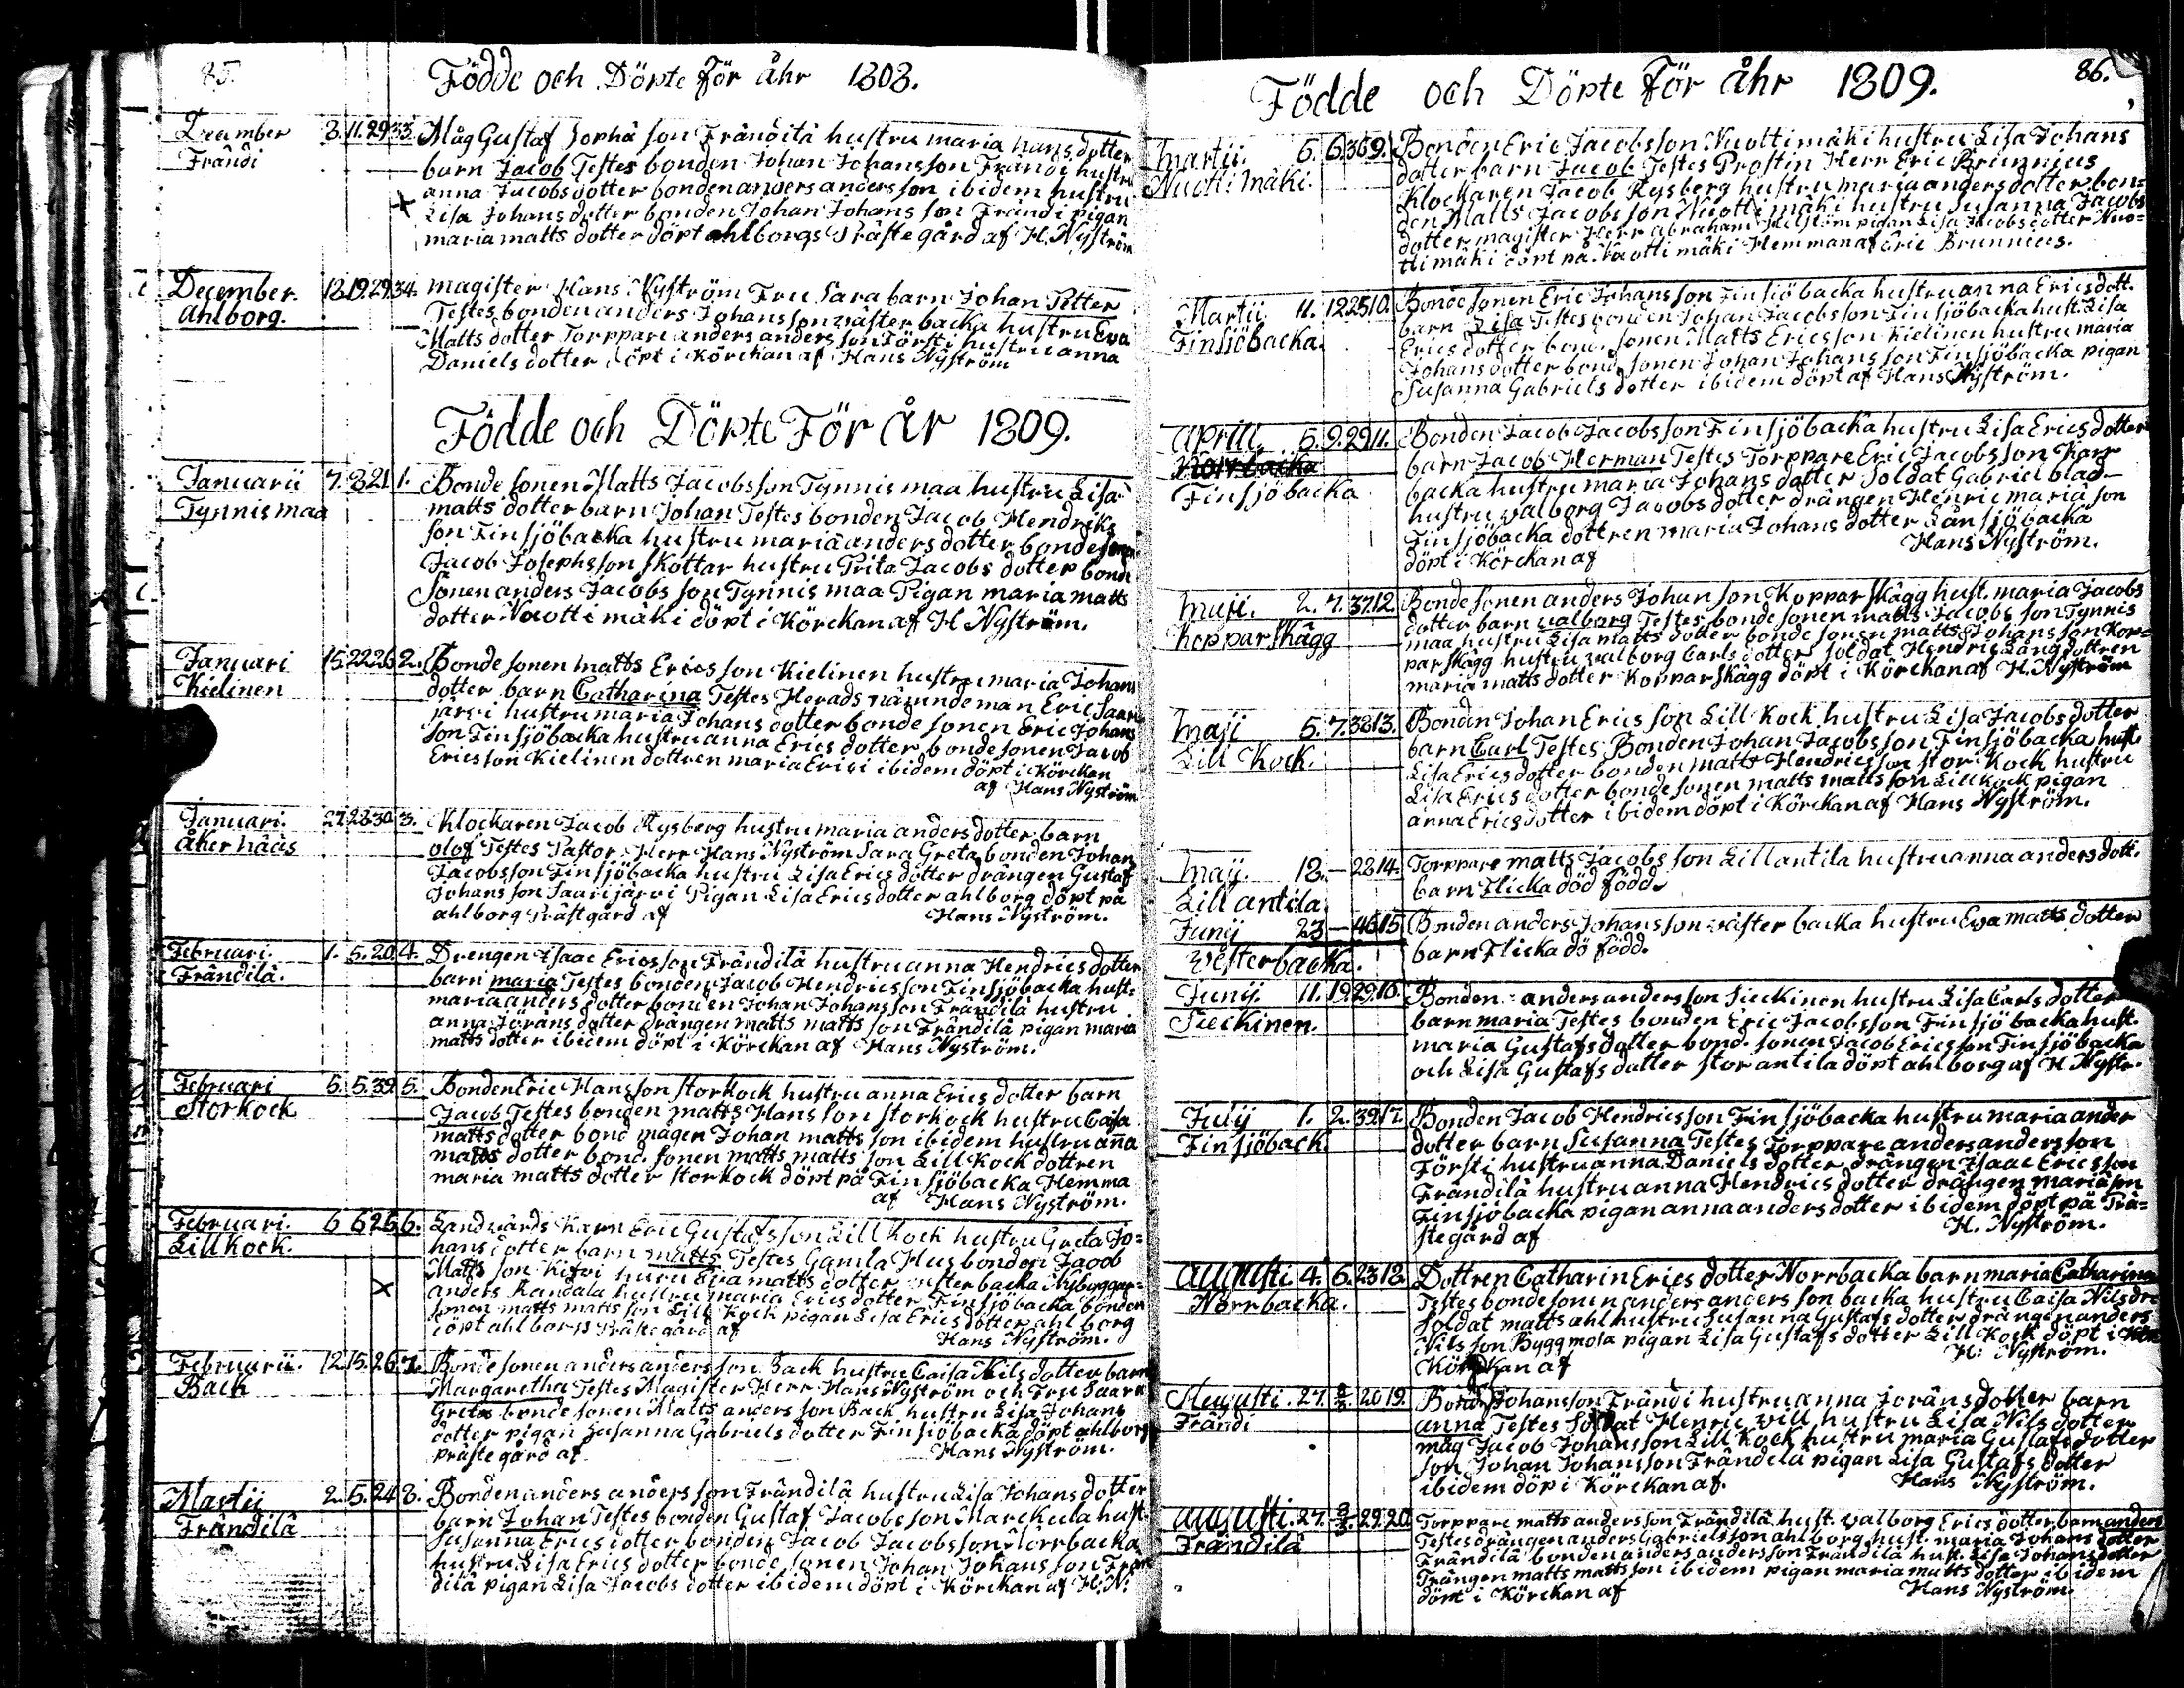 85.
Födde och Döpte För åhr 1808.
December 8. 11. 29. 33. Måg Gustaf Jophå son Frändilä hustru maria hans dotter
Frändi barn Jacob Testes bonden Johan Johansson Frändi hustru
anna Jacobs dotter bonden anders andersson ibidem hustru
Lisa Johans dotter bonden Johan Johansson Frändi pigan
maria matts dotter döpt ahlborgs Prästegård af H. Nyström
December. 18. 19. 29. 34. magister Hans Nyström Fru Sara barn Johan Petter
Ahlborg. Testes bonden anders Johansson wästerbacka hustru Eva
Matts dotter Torppare anders andersson Försti hustru anna
Daniels dotter döpt i Körckan af Hans Nyström
Födde och Döpte För år 1809.
Januarii 7. 8. 21. 1. Bonde sonen Matts Jacobsson Tynnismaa hustru Lisa
Tynnismaa matts dotter barn Johan Testes bonden Jacob Hendriks
son Finsjöbacka hustru maria anders dotter bonde sonen
Jacob Josephsson Skottar hustru Brita Jacobs dotter bonde
Sonen anders Jacobsson Tynnismaa Pigan maria matts
dotter Nuottimäki döpt i Körckan af H Nyström.
Januari 15. 22. 26. 2. Bonde sonen matts Ericsson Kielinen hustru maria Johans
Kielinen dotter barn Catharina Testes Herads nämndeman Eric Saari
järvi hustru maria Johans dotter bonde sonen Eric Johans
son Finsjöbacka hustru anna Erics dotter bonde sonen Jacob
Ericsson Kielinen dottren maria Erici ibidem döpt i Körckan
af Hans Nyström
Januari. 27. 28. 30. 3. Klockaren Jacob Rysberg hustru maria anders dotter barn
åkernääs olof Testes Pastor Herr Hans Nyström Sara Greta bonden Johan
Jacobsson Finsjöbacka hustru Lisa Erics dotter drängen Gustaf
Johansson Saarijärvi Pigan Lisa Erics dotter ahlborg döpt på
ahlborg Prästgård af Hans Nyström.
Februari. 1. 5. 20. 4. Drengen Isaac Ericsson Frändilä hustru anna Hendrics dotter
Frändilä. barn maria Testes bonden Jacob Hendricsson Finsjöbacka hust:
maria anders dotter bonden Johan Johansson Frändilä hustru
anna Jörans dotter drängen matts mattsson Frändilä pigan maria
matts dotter ibidem döpt i Körckan af Hans Nyström.
Februari 5. 5. 39. 5. Bonden Eric Hansson Storkock hustru anna Erics dotter barn
Storkock Jacob Testes bonden matts Hansson storkock hustru Caisa
matts dotter bond mågen Johan mattsson ibidem hustru anna
matts dotter bond. sonen matts mattsson Lill Kock dottren
maria matts dotter storkock döpt på Finsjöbacka Hemma
af Hans Nyström.
Februari. 6 6 26. 6. Landvärds Karn Eric Gustafsson Lill Kock hustru Greta Jo=
Lillkock. hans dotter barn matts Testes Gamla Husbonden Jacob
Matts son Kifvi hustru Eva matts dotter västerbacka Nybyggar-
anders Randala hustru maria Erics dotter Finsjöbacka bonden
sonen matts mattsson Lill Kock pigan Lisa Erics dotter ahlborg
döpt ahlborgs Prästegård af Hans Nyström.
Februarii. 12. 15. 26. 7. Bonde sonen anders andersson Back hustru Caisa Nils dotter barn
Back Margaretha Testes Magister Herr Hans Nyström och Fru Saara
Greta bonde sonen Matts andersson Back hustru Lisa Johans
dotter pigan Susanna Gabriels dotter Finsjöbacka döpt ahlborgs
prästegård af Hans Nyström.
Martii 2. 5. 24. 8. Bonden anders andersson Frändilä hustru Lisa Johans dotter
Frändilä barn Johan Testes bonden Gustaf Jacobsson Marckula hust.
Susanna Erics dotter bonden Jacob Jacobsson Norrbacka
hustru Lisa Erics dotter bonde sonen Johan Johansson Frän
dilä pigan Lisa Jacobs dotter ibidem döpt i Körckan af H. N.
86.
Födde och Döpte För åhr 1809.
Martii. 5. 6. 36. 9. Bonden Eric Jacobsson Nuottimäki hustru Lisa Johans
Nuottimäki. dotter barn Jacob Testes Prostin Herr Eric Brunnius
Klockaren Jacob Rysberg hustru maria anders dotter bon=
den Matts Jacobsson Nuottimäki hustru Susanna Jacobs
dotter magister Herr abraham pigan Lisa Jacobs dotter Nuo=
ttimäki döpt på Nuottimäki Hemman af Eric Brunnius.
Martii 11. 12. 25. 10. Bonde sonen Eric Johansson Finsjöbacka hustru anna Erics dott.
Finsjöbacka. barn Lisa Testes bonden Johan Jacobsson Finsjöbacka hust. Lisa
Erics dotter bond. sonen Matts Ericsson Kielinen hustru maria
Johans dotter bond. sonen Johan Johansson Finsjöbacka pigan
Susanna Gabriels dotter ibidem döpt af Hans Nyström.
Aprill 5. 9. 29. 11. Bonden Jacob Jacobsson Finsjöbacka hustru Lisa Erics dotter
Norrbacka barn Jacob Herman Testes Torppare Eric Jacobsson Karr
Finsjöbacka backa hustru maria Johans dotter Soldat Gabriel blad
hustru valborg Jacobs dotter drängen Henric mariä son
Finsjöbacka dottren maria Johans dotter Länsjöbacka
döpt i Körckan af Hans Nyström.
Maji. 2. 7. 37. 12. Bonde sonen anders Johansson Kopparskägg hust. maria Jacobs
Kopparskägg dotter barn valborg Testes bonde sonen matts Jacobsson Tynnis
maa hustru Lisa matts dotter bonde sonen matts Johansson Kop=
parskägg hustru valborg Carls dotter soldat Hendric Lång dottren
maria matts dotter Kopparskägg döpt i Körckan af H. Nyström
Maji 5. 7. 38. 13. Bonden Johan Ericsson Lill Kock hustru Lisa Jacobs dotter
Lill Kock. barn Carl Testes Bonden Johan Jacobsson Finsjöbacka hust.
Lisa Erics dotter bonden matts Hendricsson stor Kock hustru
Lisa Erics dotter bonde sonen matts mattsson Lillkock pigan
anna Erics dotter ibidem döpt i Körckan af Hans Nyström.
Maji. 18. — 28. 14. Torppare matts Jacobsson Lillantila hustru anna anders dott.
Lillantila. barn Flicka död född
Junij 23 — 46. 15. Bonden anders Johansson västerbacka hustru Eva matts dotter
Westerbacka. barn Flicka dö född.
Junij. 11. 19. 29. 16. Bonden anders andersson Sieckinen hustru Lisa Carls dotter
Sieckinen. barn maria Testes bonden Eric Jacobsson Finsjöbacka hust.
maria Gustafs dotter bond. sonen Jacob Ericsson Finsjöbacka
och Lisa Gustafs dotter storantila döpt ahlborg af H. Nystr.
Julij 1. 2. 39. 17. Bonden Jacob Hendricsson Finsjöbacka hustru maria ander
Finsjöback. dotter barn Susanna Testes Torppare anders andersson
Försti hustru anna Daniels dotter drängen Isaac Ericsson
Frändilä hustru anna Hendrics dotter drängen mariä son
Finsjöbacka pigan anna anders dotter ibidem döpt på Prä=
stegård af H. Nyström.
Augusti 4. 6. 23. 18. Dottren Catharin Erics dotter Norrbacka barn maria Catharina
Norrbacka. Testes bonde sonen anders andersson backa hustru Caisa Nils dr
Soldat matts ahl hustru Susanna Gustafs dotter drängen anders
Nilsson Byggmola pigan Lisa Gustafs dotter Lill Kock döpt i
Körckan af H. Nyström.
Augusti. 27. 20. 19. Bond Johansson Frändi hustru anna Joräns dotter barn
Frändi anna Testes Soldat Henric vill hustru Lisa Nils dotter
måg Jacob Johansson Lill Kock hustru maria Gustafs dotter
son Johan Johansson Frändilä pigan Lisa Gustafs dotter
ibidem döpi Körckan af. Hans Nyström.
Augusti. 27. 29. 20. Torppare matts andersson Frändilä hust. valborg Erics dotter barn anders
Frändilä Testes drängen anders Gabrielsson ahlborg hust. maria Johans dotter
Frändilä bonden anders andersson Frändilä hust. Lisa Johans dotter
drängen matts mattsson ibidem pigan maria matts dotter ibidem
döpt i Körckan af Hans Nyström.